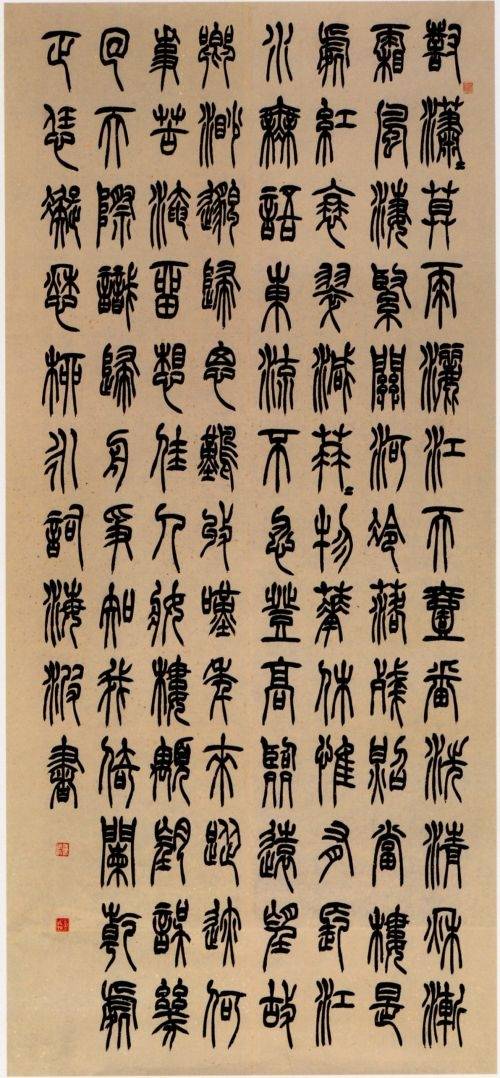 對瀟々莫雨灑江天壹番洗清秋漸
霜風淒緊關河冷落殘照當樓是
處紅衰翠減苒々物華休惟有長江
水無語東流不忍登高臨遠望故
鄉渺邈歸思難收嘆年來蹤迹何
事苦淹留想佳人妝樓顒望誤幾
回天際識歸舟爭知我倚闌乾處
正恁凝愁柳永詞海波書